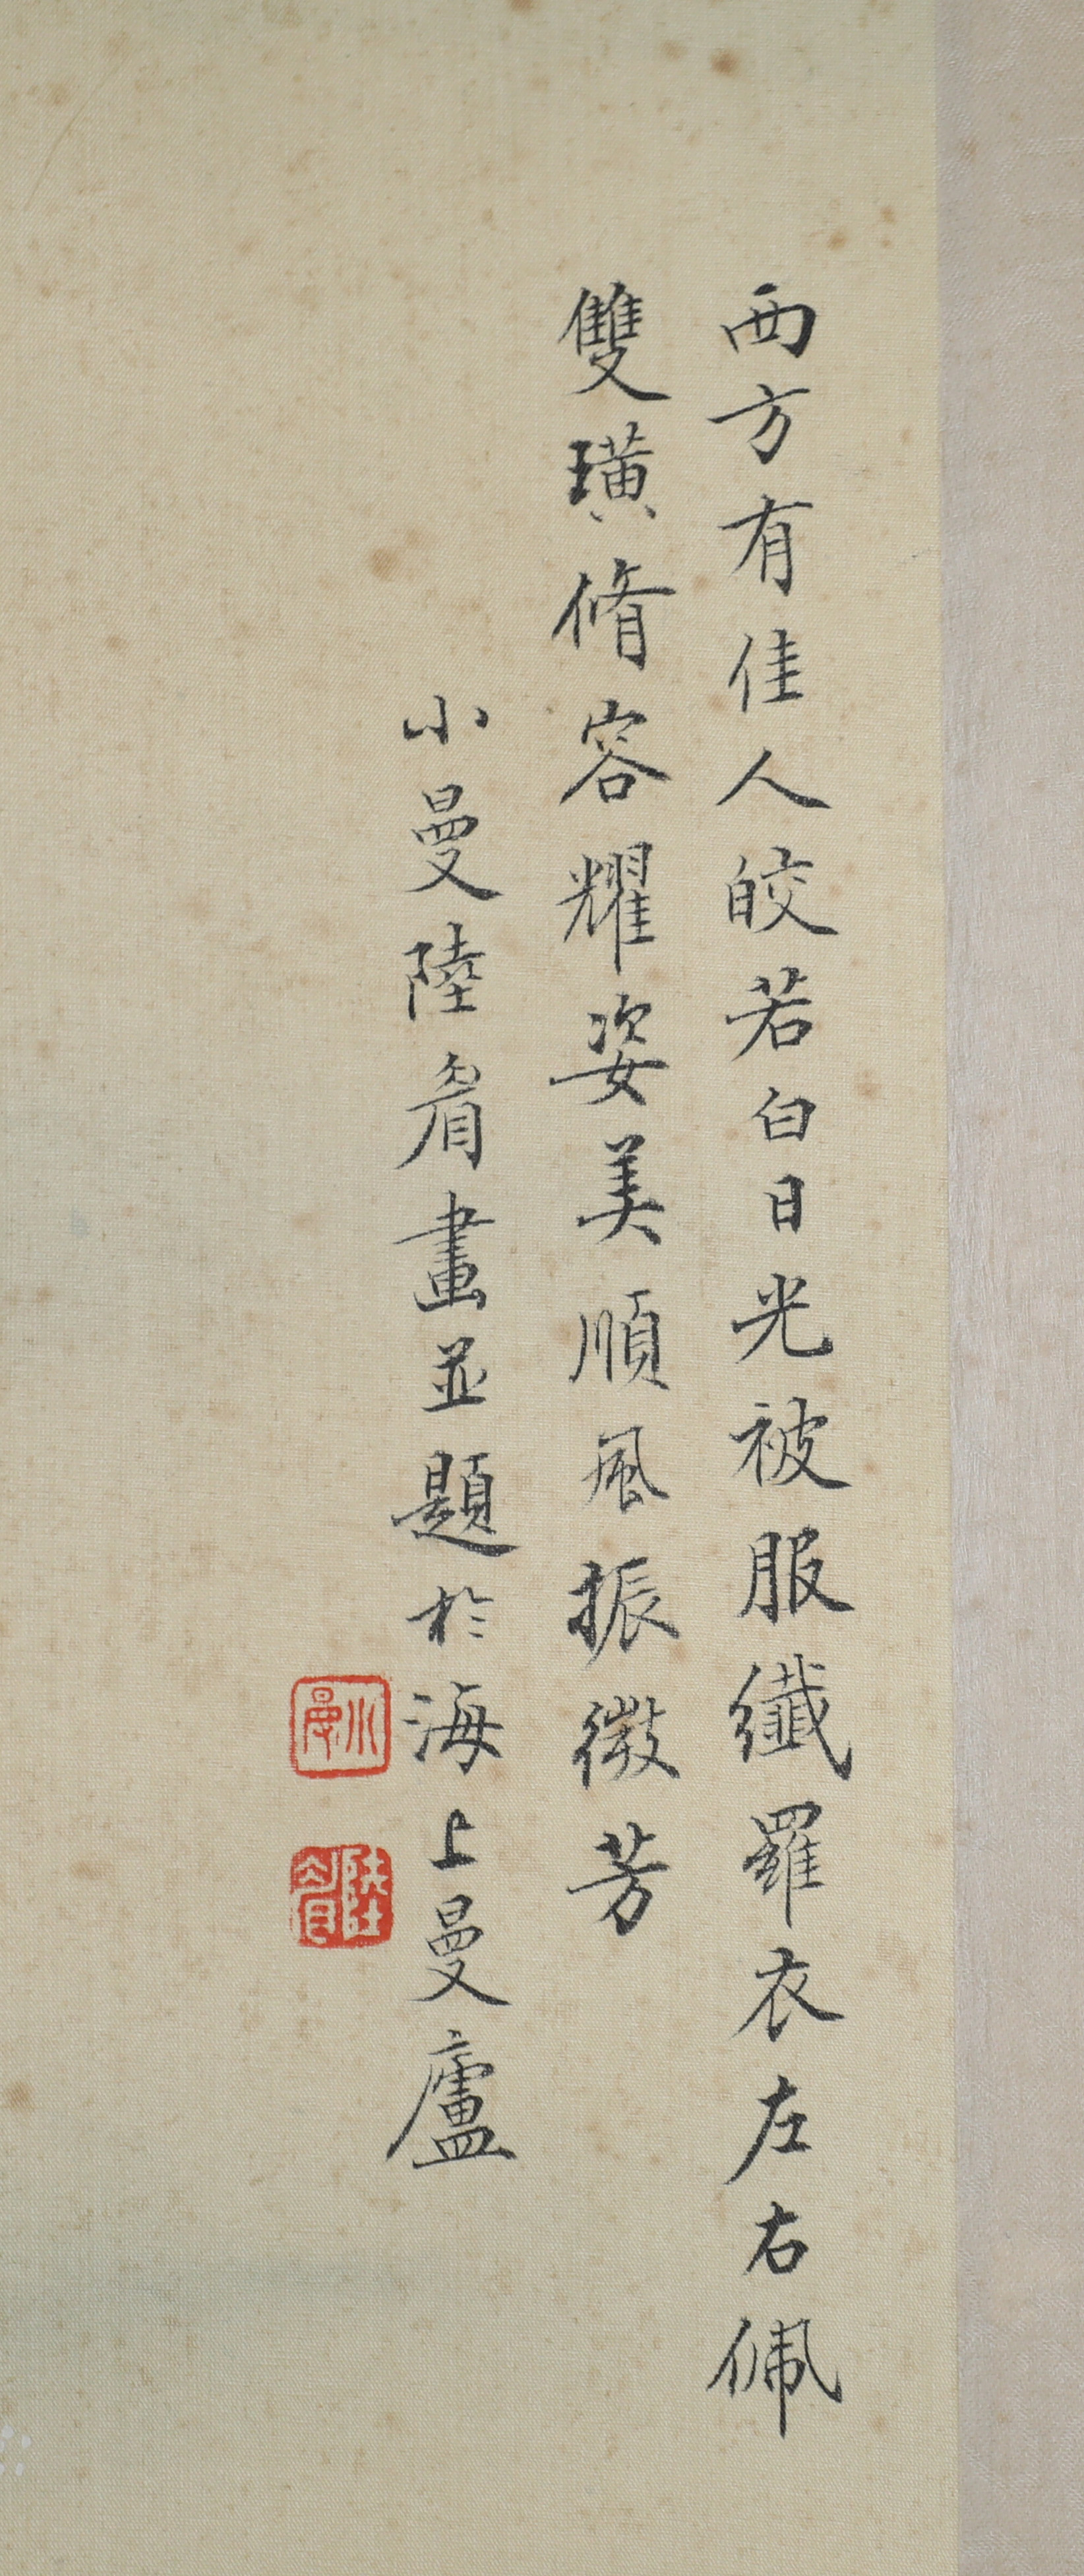 西方有佳人皎若白日光被服纖羅衣左右佩
雙璜脩容耀姿美順風振微芳
小曼陸眉畫並題於海上曼廬
小曼
陸眉